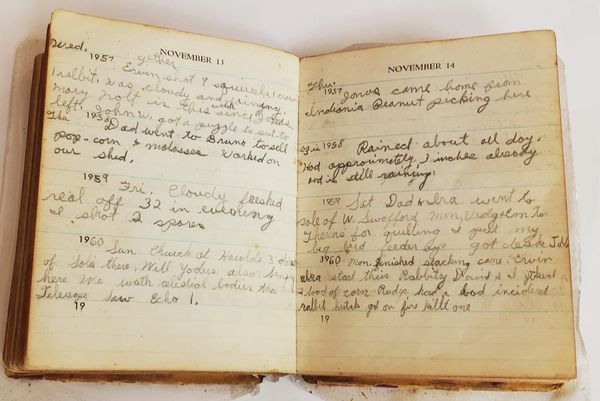 NOVEMBER 13
Wed.
1957 gether
Ervin shot 9 squirrels 1 coon
1 rabbit. was cloudy and raining.
Mary is this week since
left. John W. got a puzzle to put to
Thu 1958
Dad went to Bruno to sell
pop-corn & molasses worked on
our shed.
1959 Fri. Cloudy
real off 32 in evening
I shot 2 spares
1960 Sun. Church at Harolds 3
of Sols there. Will Yodies also
here We watch celestial bodies thru
Telescope saw Echo 1.
19
NOVEMBER 14
Thu.
1957 Jonas came home from
Indiania Peanut picking here
Fri 1958 Rained about all day.
Had approximately 3 inches already
and is still raining.
1959 Sat Dad & Ira went to
sale of W. Swofford Mon, to
for quilting I put my
big bird feeder up got
1960 Mon. finished stacking cane. Ervin
start their Rabbitry David & I
load of corn Rudys had a bad incident
rabbit hutch got on fire killt one
19